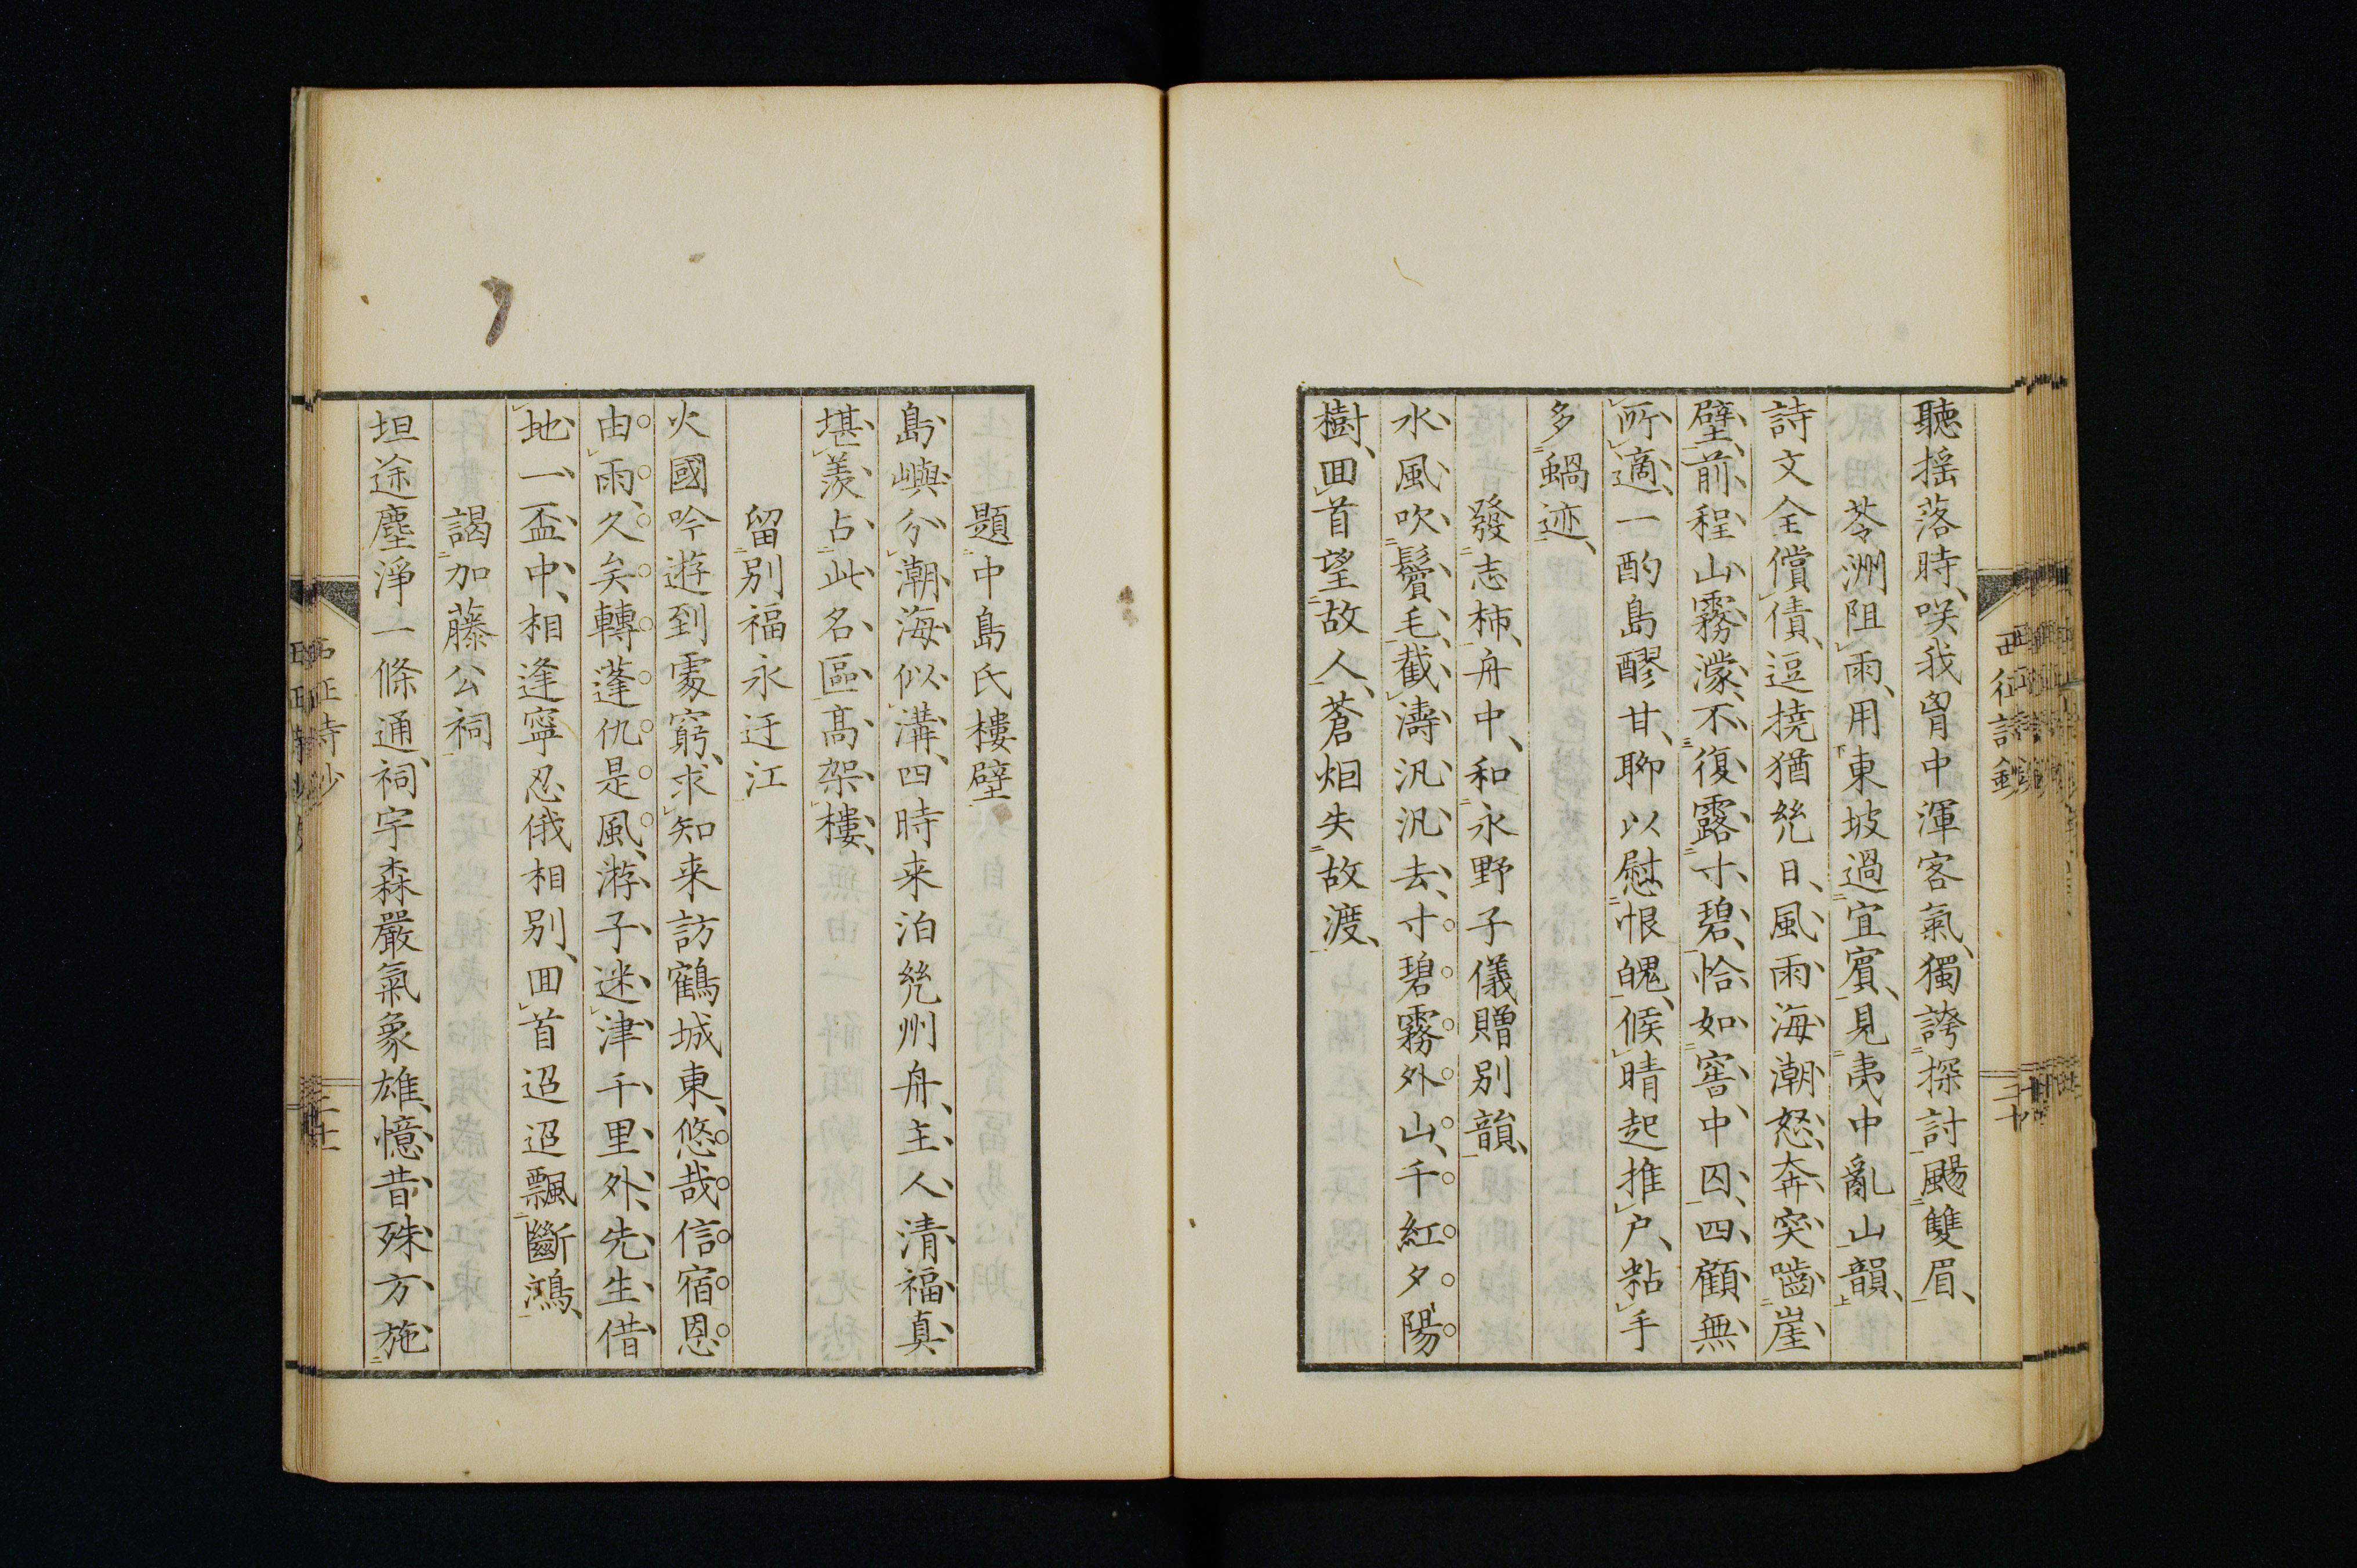 聽摇落時、咲我胷中渾客氣、獨誇探討颺雙眉、
苓洲阻雨、用東坡過宜賔、見夷中亂山韻、
詩文全償債、逗撓猶兠日、風雨海潮怒、奔突嚙崖
壁、前程山霧濛、不復露寸碧、恰如窖中囚、四顧無
所適、一酌島醪甘、聊以慰恨愧、候晴起推戸、粘手
多蝸迹、
發志柿、舟中、和永野子儀贈別韻、
水風吹鬢毛、截濤汎汎去、寸碧霧外山、千紅夕陽
樹、囬首望故人、蒼烟失故渡、
西征詩鈔
二十
題中島氏樓壁
島嶼分潮海似溝、四時来泊兠州舟、主人清福真
堪羨、占此名區高架樓、
留別福永迂江
火國吟遊到處窮、求知来訪鶴城東、悠哉信宿恩
由雨、久矣轉蓬仇是風、游子迷津千里外、先生借
地一盃中、相逢寧忍俄相別、囬首迢迢飄斷鴻、
謁加藤公祠
坦途塵淨一條通、祠宇森嚴氣象雄、憶昔殊方施